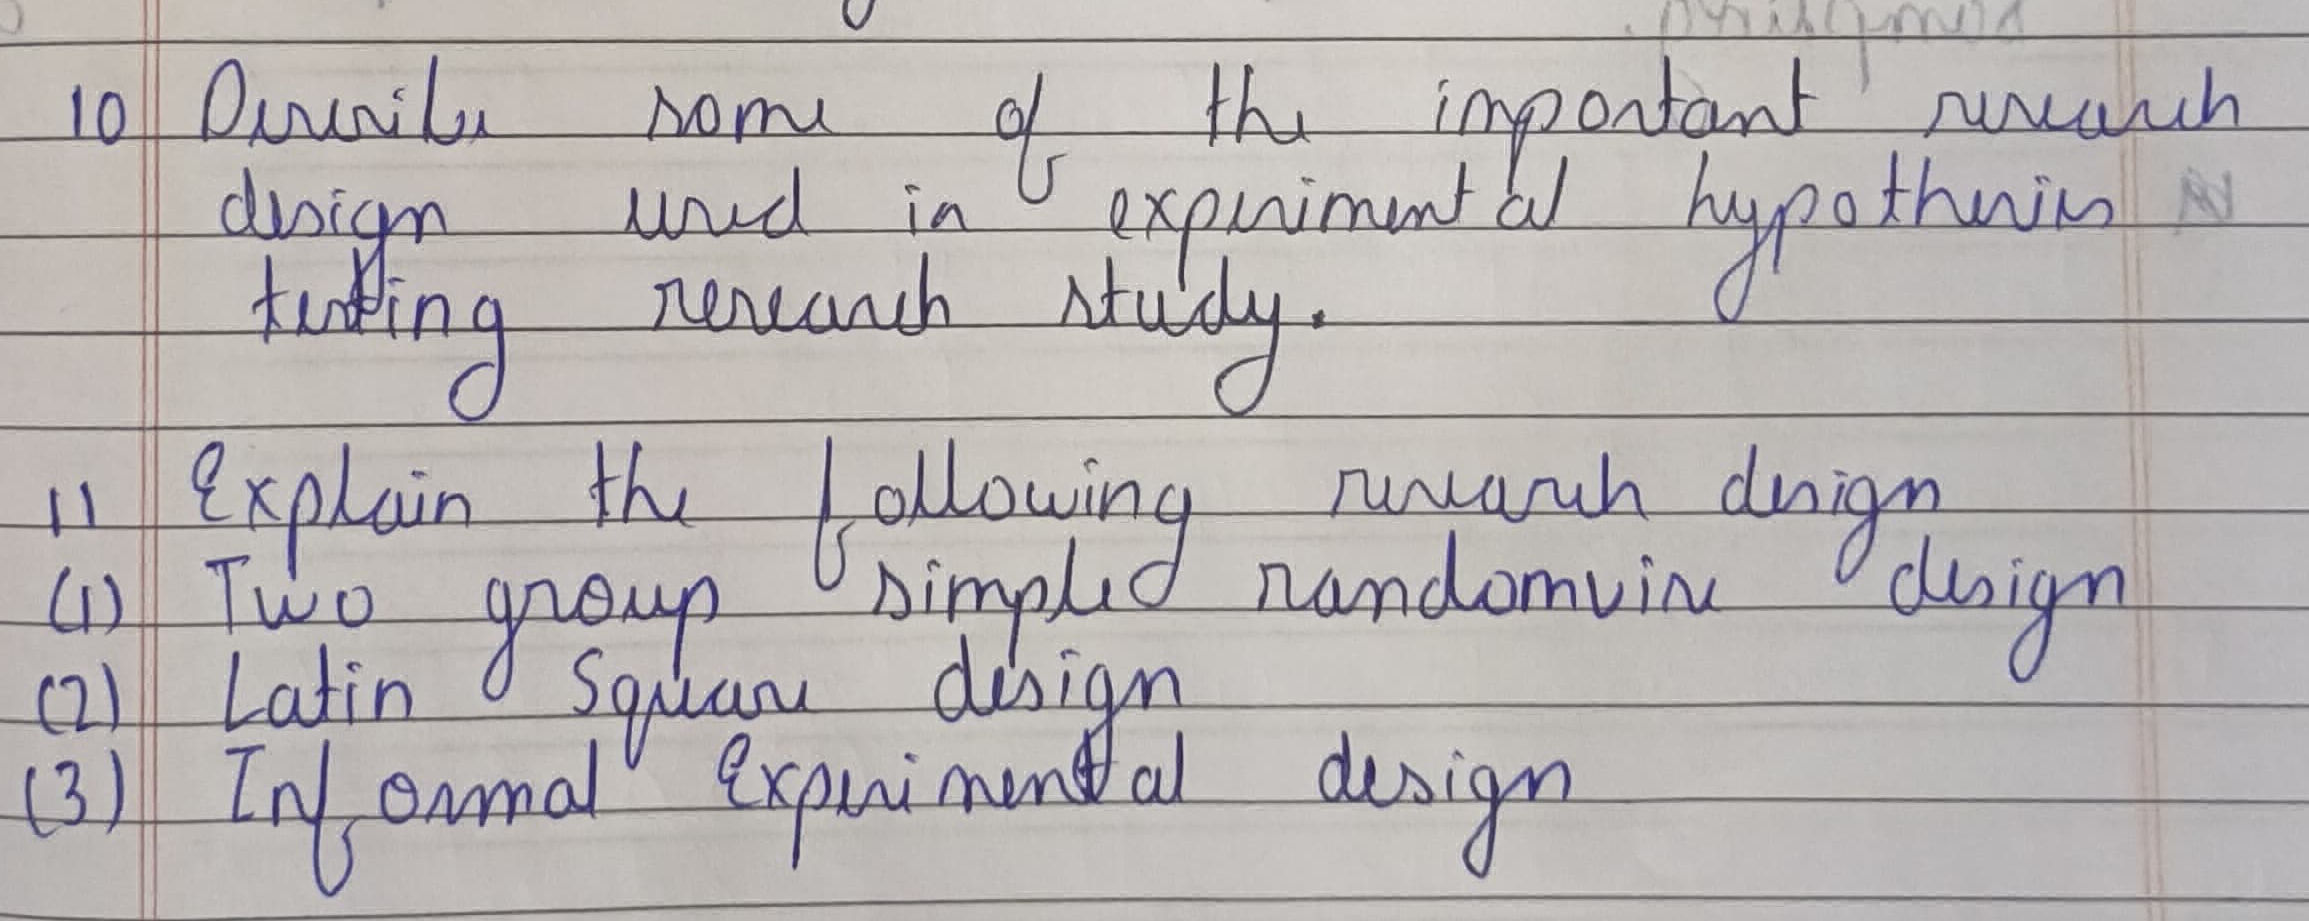 10 Describe some of the important research
design used in experimental hypothesis
testing research study.
11 Explain the following research design
(1) Two group simpled randomvise design
(2) Latin Square design
(3) Informal Experimental design